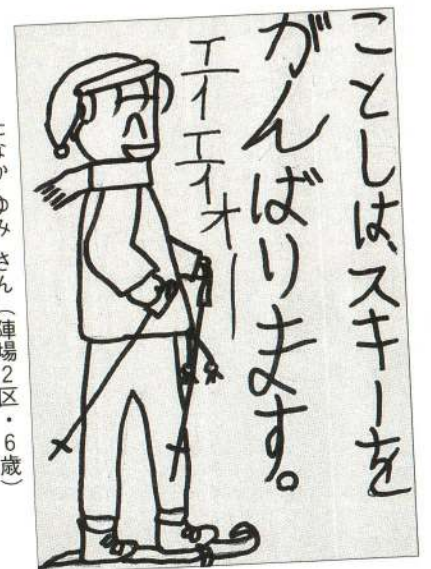 ことしは、スキーを
がんばります。
エイエイオー
たなか ゆみ さん(陣場2区・6歳)